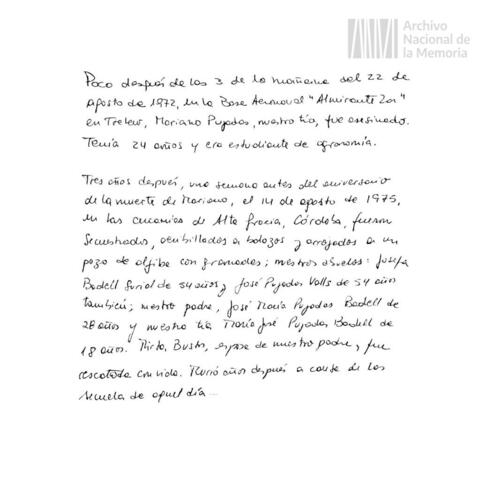 Archivo
Nacional de
la Memoria
Poco después de las 3 de la mañana del 22 de
agosto de 1972, en la Base Aeronaval "Almirante Zar"
en Trelew, Mariano Pujadas, nuestro tío, fue asesinado.
Tenía 24 años y era estudiante de agronomía.
Tres años después, una semana antes del aniversario
de la muerte de Mariano, el 14 de agosto de 1975,
en las cercanías de Alta Gracia, Córdoba, fueron
secuestrados, acribillados a balazos y arrojados a un
pozo de aljibe con granadas; nuestros abuelos: Josefa
Badell Suriol de 54 años y José Pujadas Valls de 54 años
también; nuestro padre, José María Pujadas Badell de
28 años y nuestra tía María José Pujadas Badell de
18 años. Mirta Bustos, esposa de nuestro padre, fue
rescatada con vida. Murió años después a causa de las
secuela de aquel día...